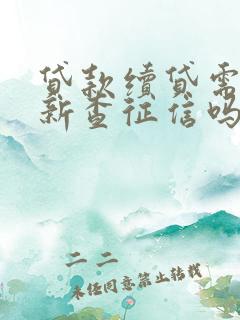 贷款续贷需
新查征信吗
二二
未经同意禁止转载